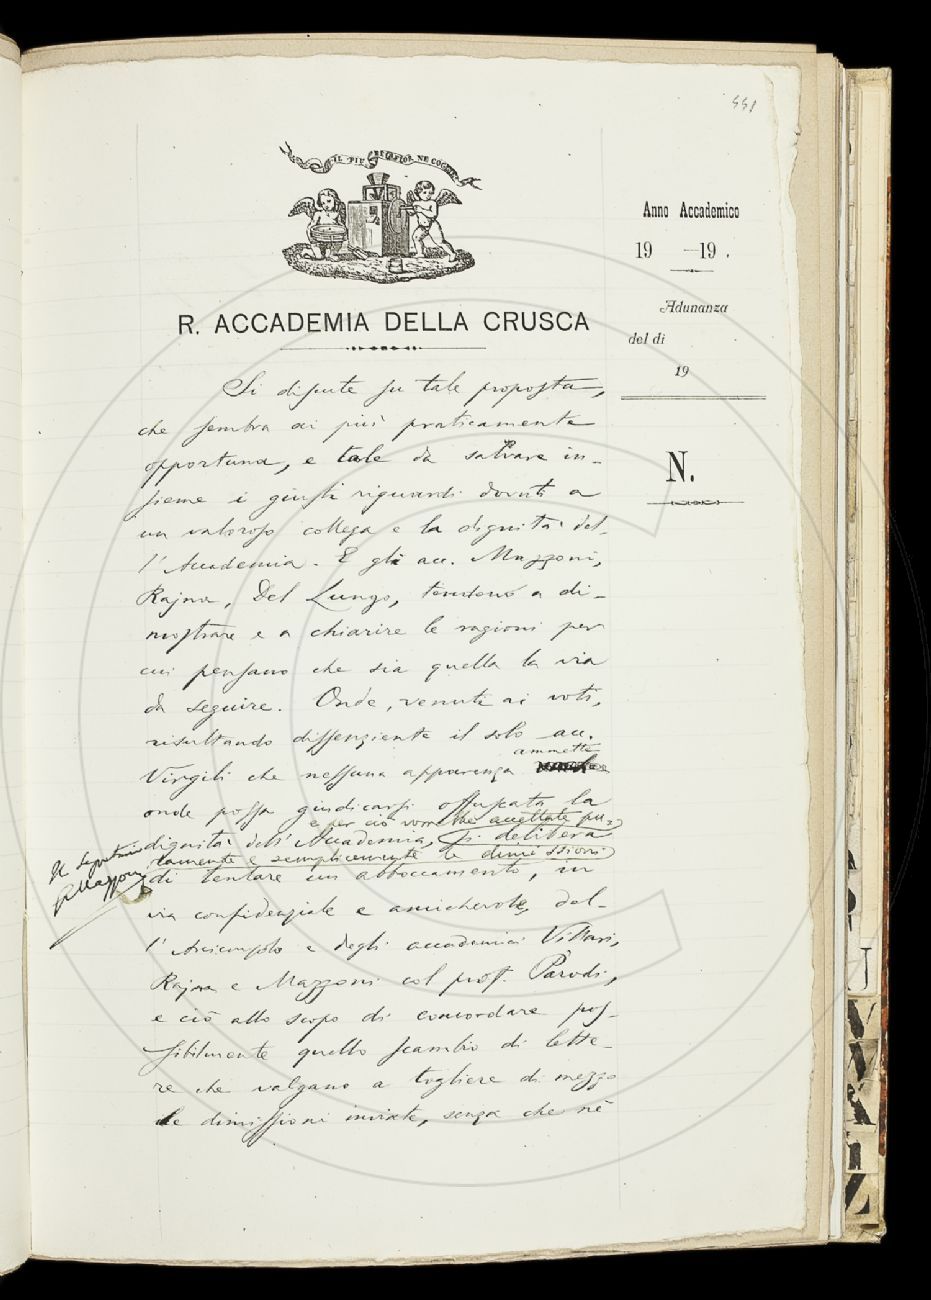 441
IL PIÙ BEL FIOR NE COGLIE
Anno Accademico
19 —19 .
Adunanza
del dì
19
N.
R. ACCADEMIA DELLA CRUSCA
Si discute su tale proposta,
che sembra ai più praticamente
opportuna, e tale da salvare in-
sieme i giusti riguardi dovuti a
un valoroso collega e la dignità del-
l'Accademia. E gli acc. Mazzoni,
Rajna, Del Lungo, tendono a di-
mostrare e a chiarire le ragioni per
cui pensano che sia quella la via
da seguire. Onde, venuti ai voti,
risultando dissenziente il solo acc.
ammette
Virgili che nessuna apparenza
onde possa giudicarsi offuscata la
e per ciò vorrebbe accettate pu-
dignità dell'Accademia, si delibera
ramente e semplicemente le dimissioni
Il Segretario
G Mazzoni
di tentare un abboccamento, in
via confidenziale e amichevole, del-
l'Arciconsolo e degli accademici Villari,
Rajna e Mazzoni col prof. Parodi,
e ciò allo scopo di concordare pos-
sibilmente quello scambio di lette-
re che valgano a togliere di mezzo
le dimissioni inviate, senza che nè